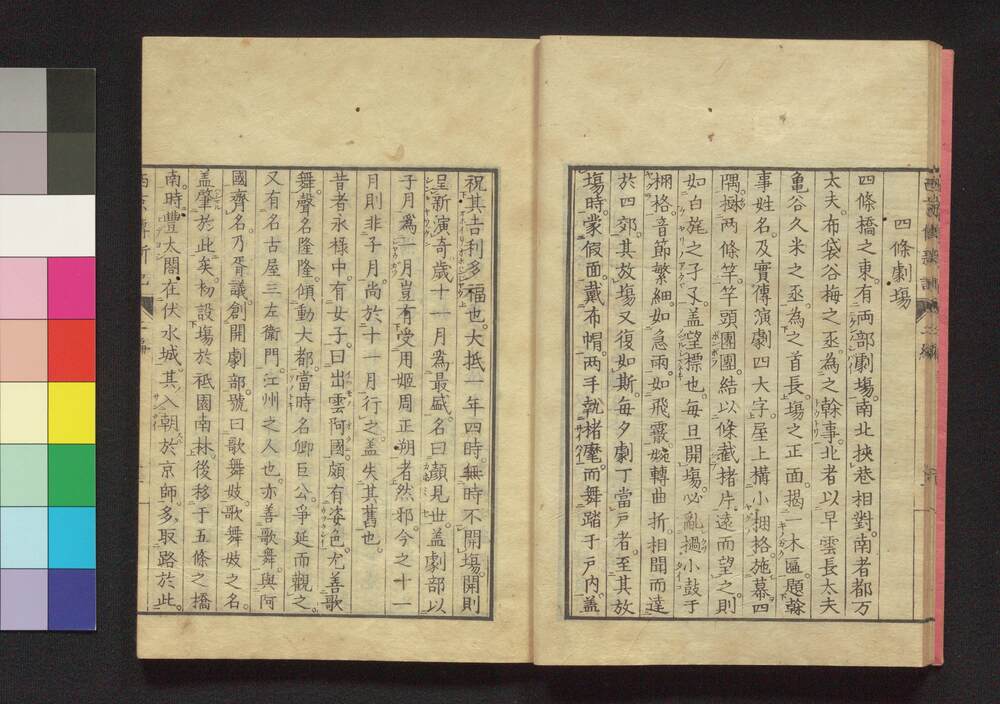 四條劇塲
四條橋之東。有両部劇塲。南北挾巷相對。南者都万
太夫。布袋谷梅之丞為之幹事。北者以早雲長太夫
亀谷久米之丞。為之首長。塲之正面。揭一木匾。題榦
事姓名。及實傳演劇四大字。屋上構小棚格。施幕四
隅。樹両條竿。竿頭團團。結以條截楮片。遠而望之。則
如白旄之孑孑。盖望標也。每旦開塲。必亂撾小鼓于
棚格。音節繁細。如急雨。如飛霰。婉轉曲折。相聞而達
於四郊。其放塲又復如斯。每夕劇丁當戸者。至其放
塲時。蒙假面。戴布帽。两手執楮麾。而舞踏于戸内。盖
祝其吉利多福也。大抵一年四時。無時不開塲。開則
呈新演奇。歲十一月為最盛。名曰顔見世。盖劇部以
子月為一月。豈有受用姬周正朔者然邪。今之十一
月則非子月。尚於十一月行之。盖失其舊也。
昔者永禄中。有女子。曰出雲阿國。頗有姿色。尤善歌
舞。聲名隆隆。傾動大都。當時名卿巨公。爭延而觀之。
又有名古屋三左衛門。江州之人也。亦善歌舞。與阿
國齊名。乃胥議。創開劇部。號曰歌舞妓。歌舞妓之名。
盖肇於此矣。初設塲於祇園南林。後移于五條之橋
南。時豐太閤。在伏水城。其入朝於京師。多取路於此。